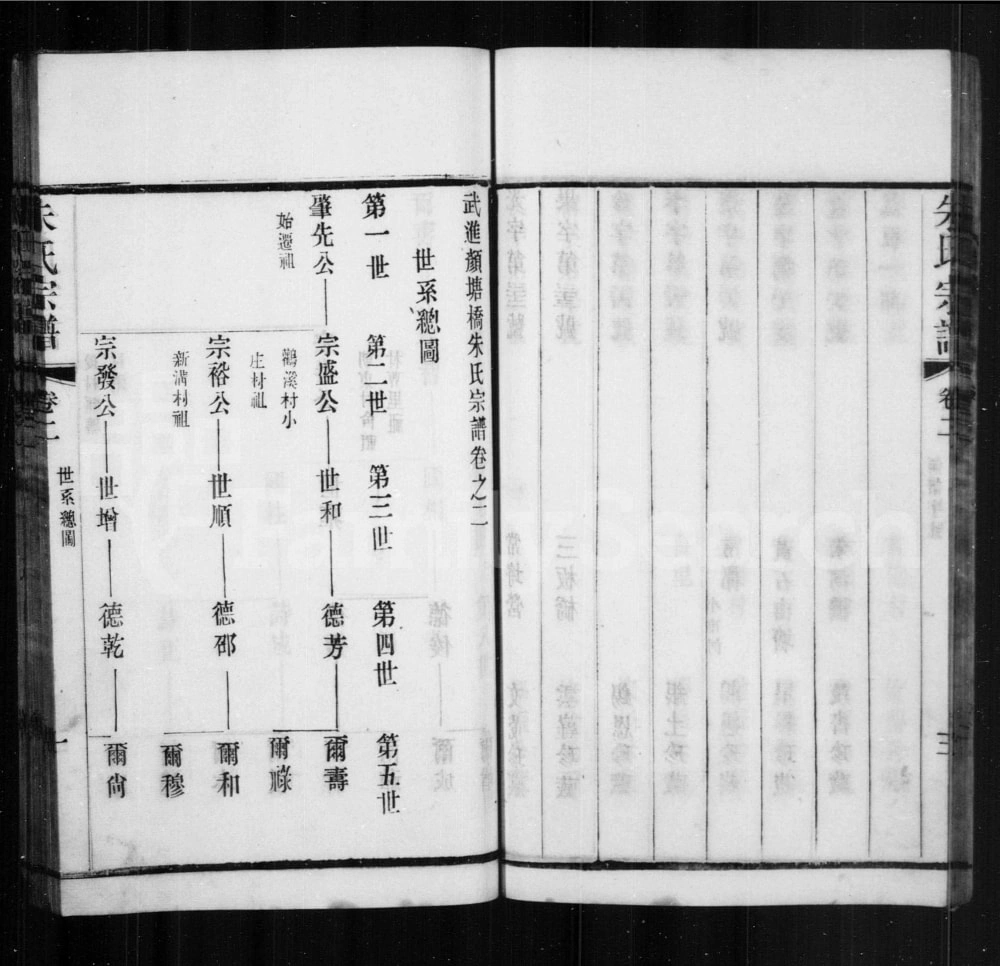 朱氏宗譜
卷二
三
武進顏塘橋朱氏宗譜卷之二
世系總圖
第一世
第二世
第三世
第四世
第五世
肇先公
宗盛公
世和
德芳
爾壽
始遷祖
鶴溪村小
庄村祖
爾祿
宗裕公
世順
德邵
爾和
新溝村祖
爾穆
宗發公
世增
德乾
爾尙
朱氏宗譜
卷二
世系總圖
一